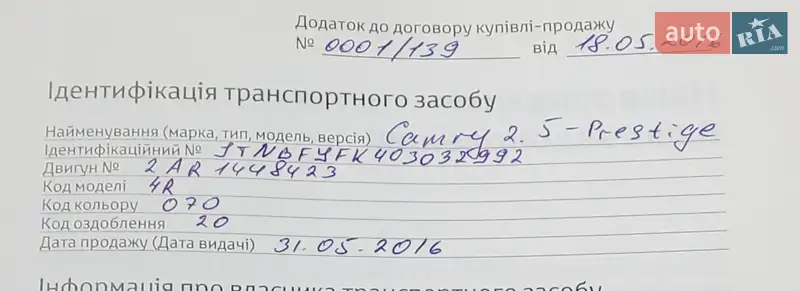 Додаток до договору купівлі-продажу
№ 0001/139 від 18.05.2016
auto RIA.com
Ідентифікація транспортного засобу
Найменування (марка, тип, модель, версія) Camry 2.5-Prestige
Ідентифікаційний № JTNBF4FK403032992
Двигун № 2AR1448423
Код моделі 4R
Код кольору 070
Код оздоблення 20
Дата продажу (Дата видачі) 31.05.2016
Інформація про власника транспортного засобу